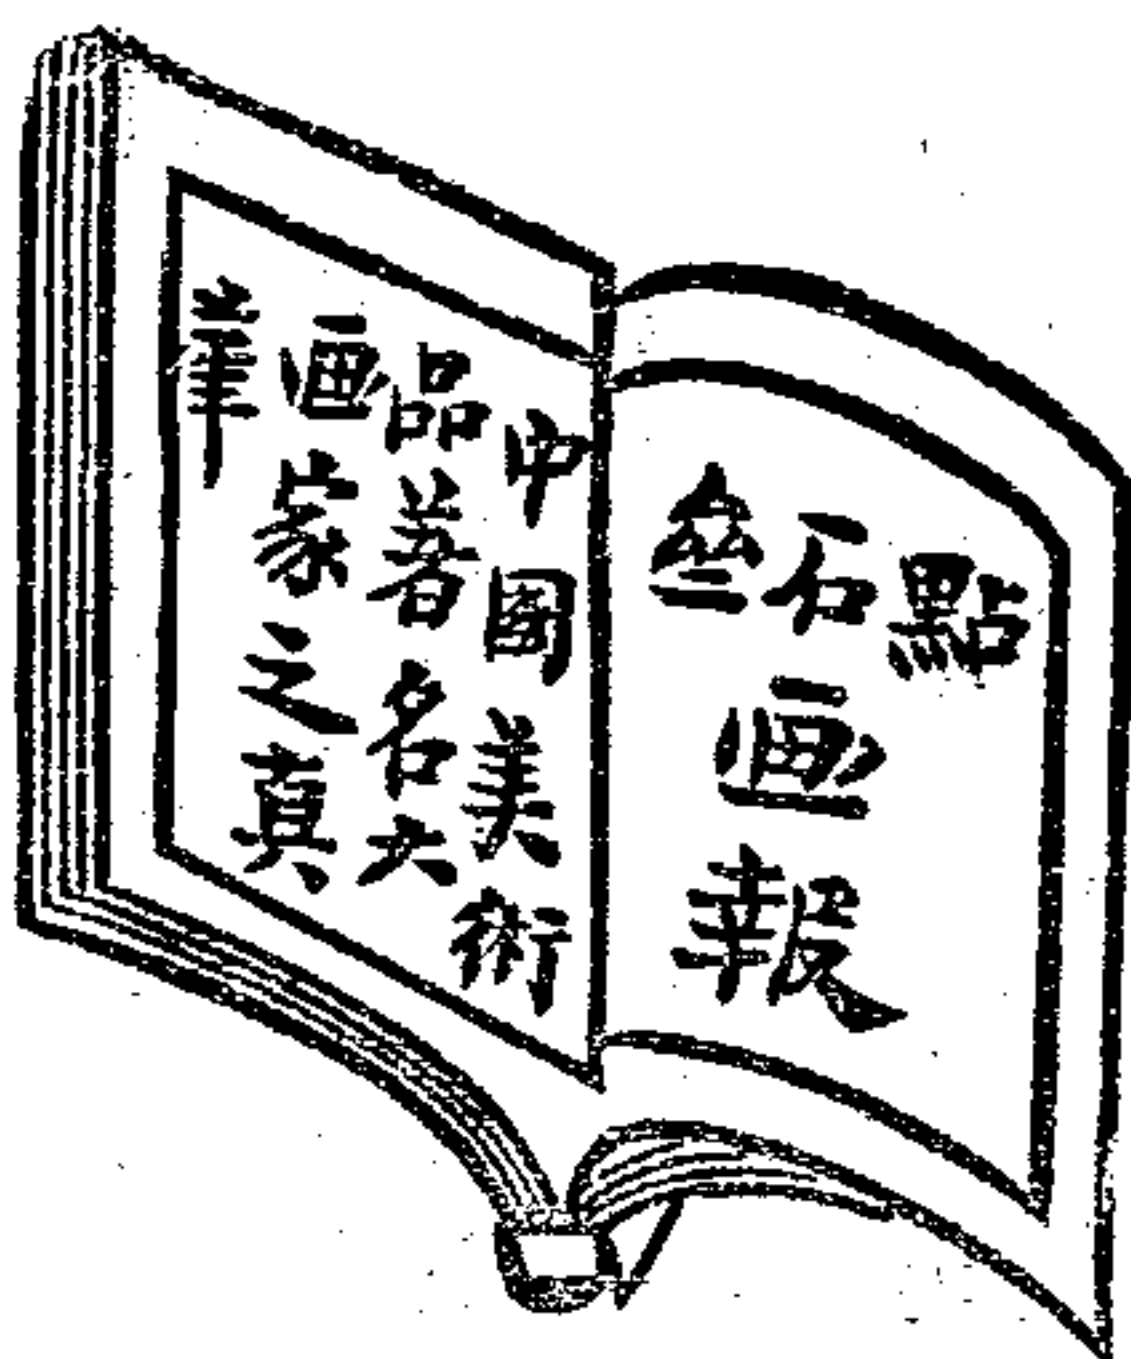 點石亝
画報
中國美術
品著名大
画家之真
筆